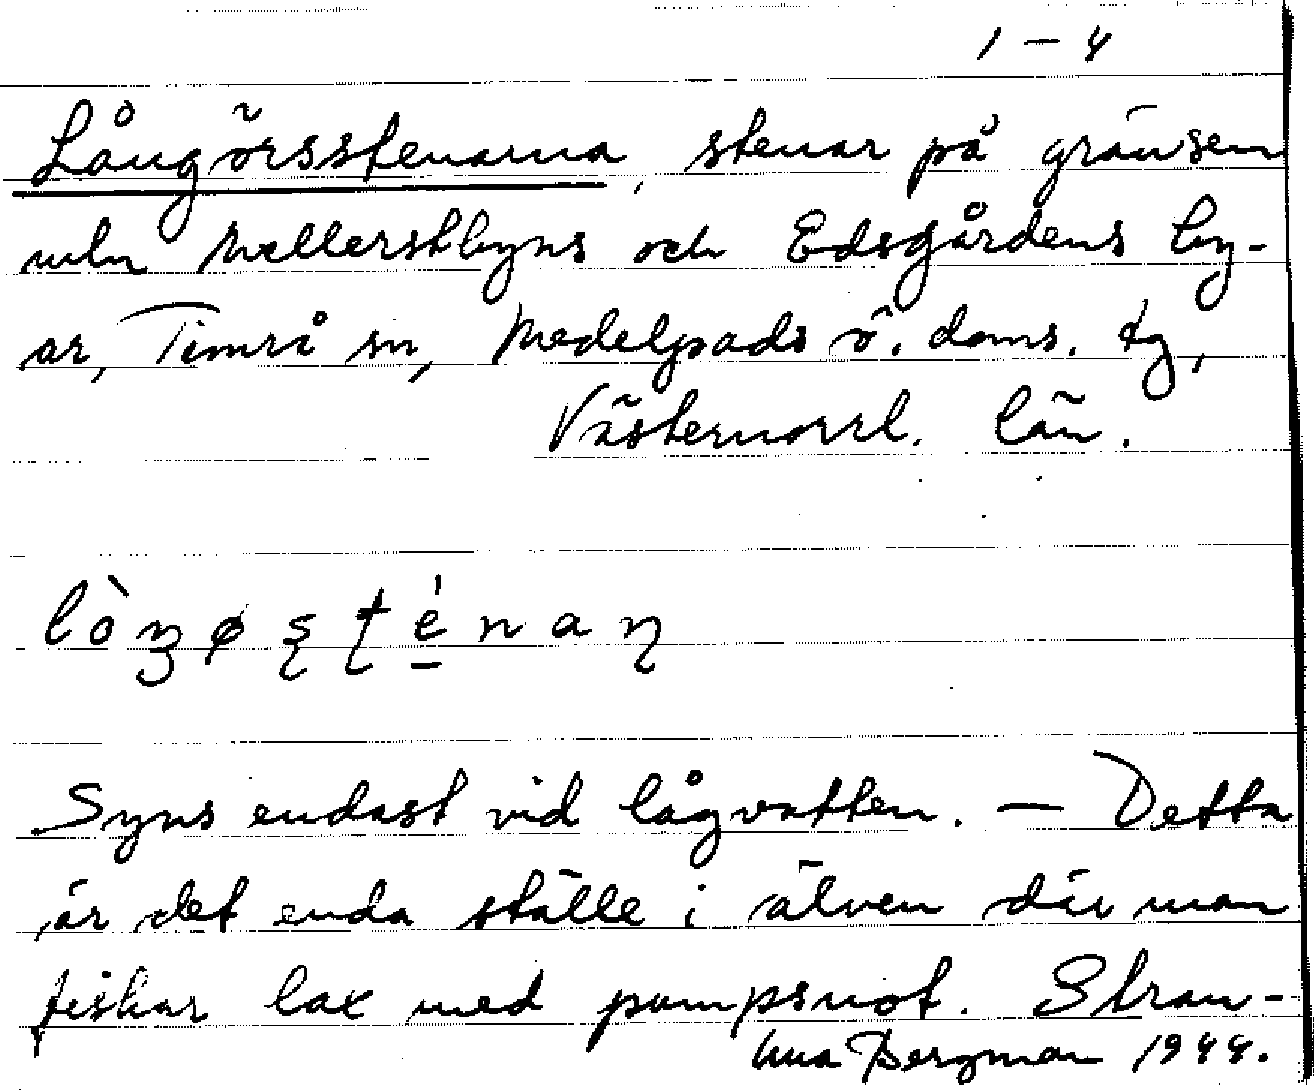 1 – 4
Långörsstenarna, stenar på gränsen
mln Mellerstbyns och Edsgårdens by-
ar, Timrå sn, Medelpads ö. doms. tg,
Västernorrl. län.
Syns endast vid lågvatten. — Detta
är det enda ställe i älven där man
fiskar lax med pampsnot. Stran-
Bergman 1944.